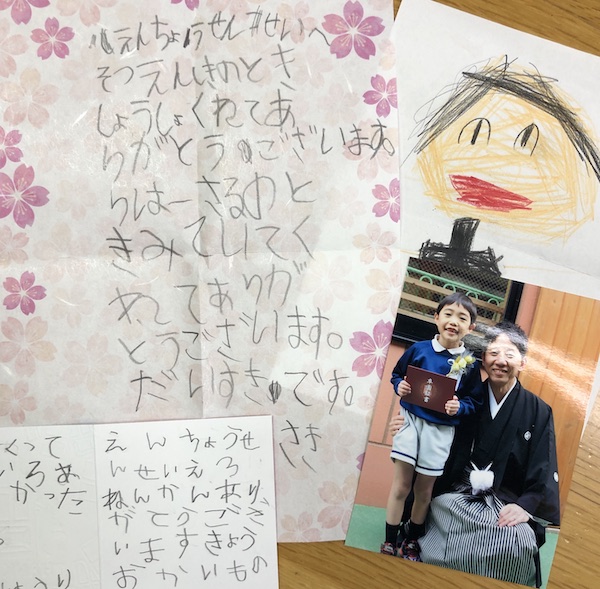 えんちょうせんせいへ
そつえんしきのとき
しょうしょくれてあ
りがとうございます。
りはーさるのと
きみていてく
れてありが
とうございます。
だいすきです。
さき
くって
いろあ
かった
えんちょうせ
んせいえろ
ねんかんあり
がとうござ
いますきょう
おかいもの
卒園証書